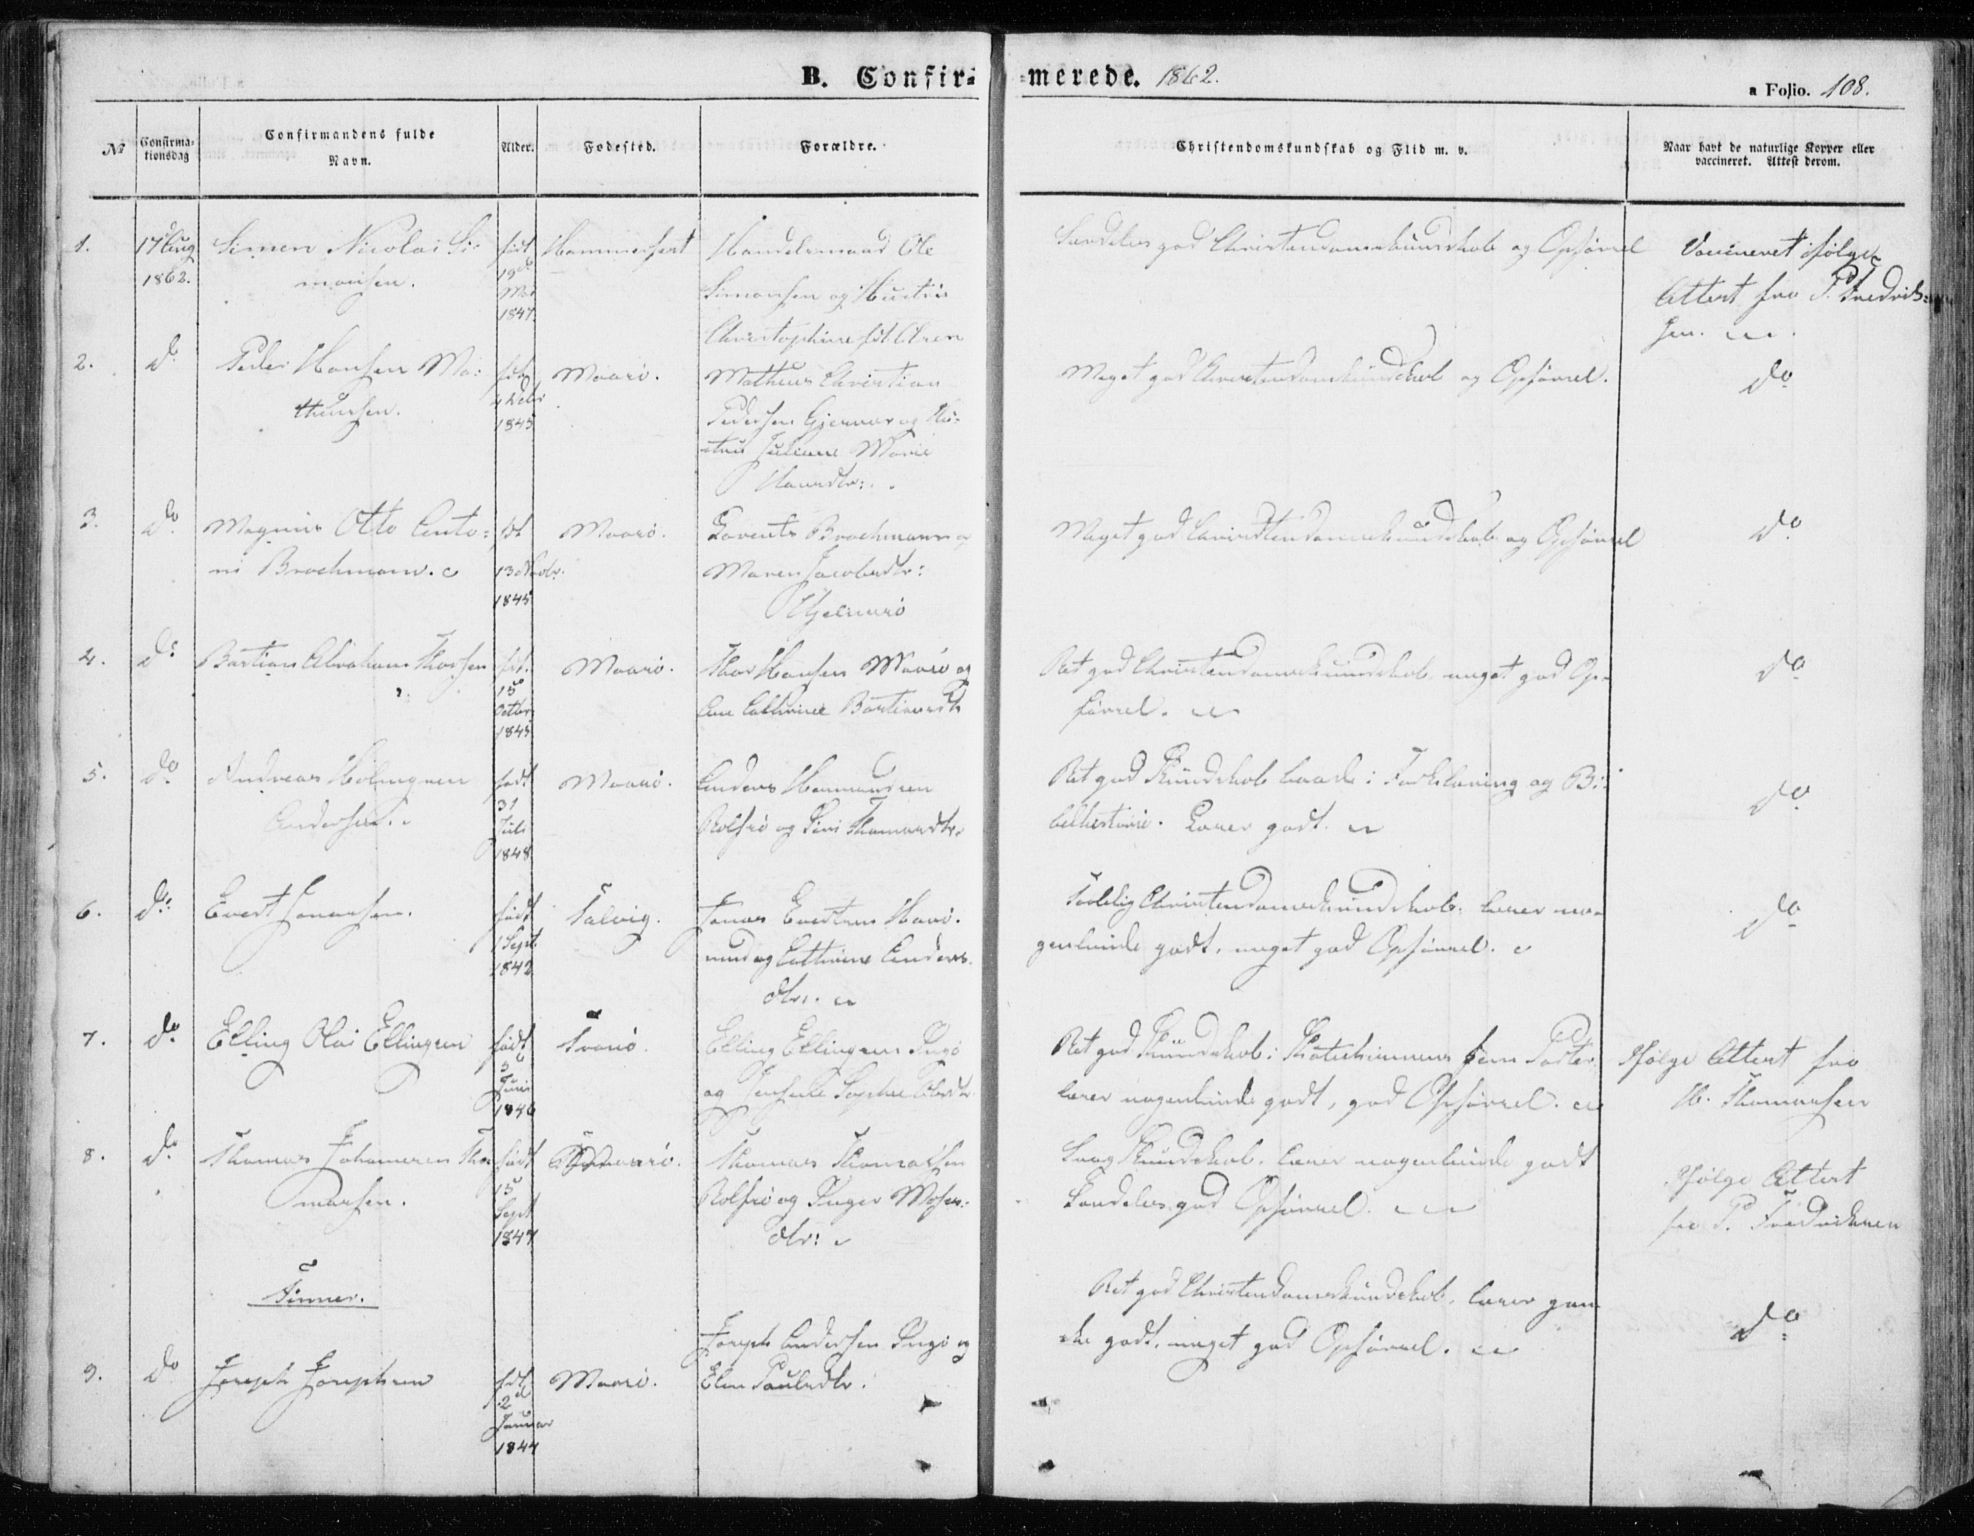 B. Confir=merede. 1862.
a Folio. 108.
No
Confirma=
tionsdag
Confirmandens fulde
Navn.
Alder.
Fødested.
Forældre.
Christendomskundskab og Flid m. v.
Naar havt de naturlige Kopper eller
vaccineret. Attest derom.
1.
17 Aug
1862.
Simon Nicolai Si=
monsen.
født
19de
Mai
1847
Hammerfest
Handelsmand Ole
Simonsen og Hustru
Christophine fdt. Aren
Særdeles god Christendomskundskab og Opførsel
Vaccineret ifølge
Attest fra P. Fredrik=
sen.
2.
do
Peder Hansen Ma=
thisen.
født
1845
Maasø.
Mathias Christian
Pedersen Gjesvær og Hu=
stru Juliane Marie
Hansdtr:
Meget god Christendomskundskab og Opførsel.
do
3.
do
Magnus Otto Anto=
ni Brochmann.
fdt
13 Novbr.
1845
Maasø.
Lorents Brochmann og
Maren Jacobsdtr:
Hjelmsø
Meget god Christendomskundskab og Opførsel
do
4.
do
Bastian Abraham Thorsen
fdt.
15
Octbr
1845
Maasø.
Thor Hansen Maasø og
Ane Cathrine Bastiansdtr
Ret god Christendomskundskab, meget god Op=
førsel.
do
5.
do
Andreas Holmgren
Andersen.
født
31
Juli
1848
Maasø.
Anders Amundsen
Rolfsø og Siri Thomasdtr.
Ret god Kundskab baade i Forklaring og Bi=
belhistorie. Læser godt.
do
6.
do
Evert Jonassen.
født
1 Sept.
1842
Talvig.
Jonas Evertsen Havø=
sund og Cathrine Anders=
dtr.
Taalelig Christendomskundskab, læser no=
genlunde godt, meget god Opførsel.
do
7.
do
Elling Olai Ellingsen
født
5
Juni
1846
Ellingsen Ingø
og Sophie Olsdtr
Ret god Kundskab i Katechismens fem Parter
læser nogenlunde godt, god Opførsel.
Ifølge Attest fra
Th. Thomassen
8.
do
Thomas Johannesen Tho=
massen.
født
15
Sept
1847
Thomas Thomassen
Rolfsø og Inger Moses=
dtr:
Svag Kundskab. læser nogenlunde godt
Særdeles god Opførsel.
Ifølge Attest
fra P. Fredriksen
Finner.
9.
do
Joseph Josephsen
fdt
2
Januar
1844
Maasø.
Joseph Andersen Ingø og
Elen Paulsdtr.
Ret god Christendomskundskab, læser gan=
ske godt, meget god Opførsel.
do